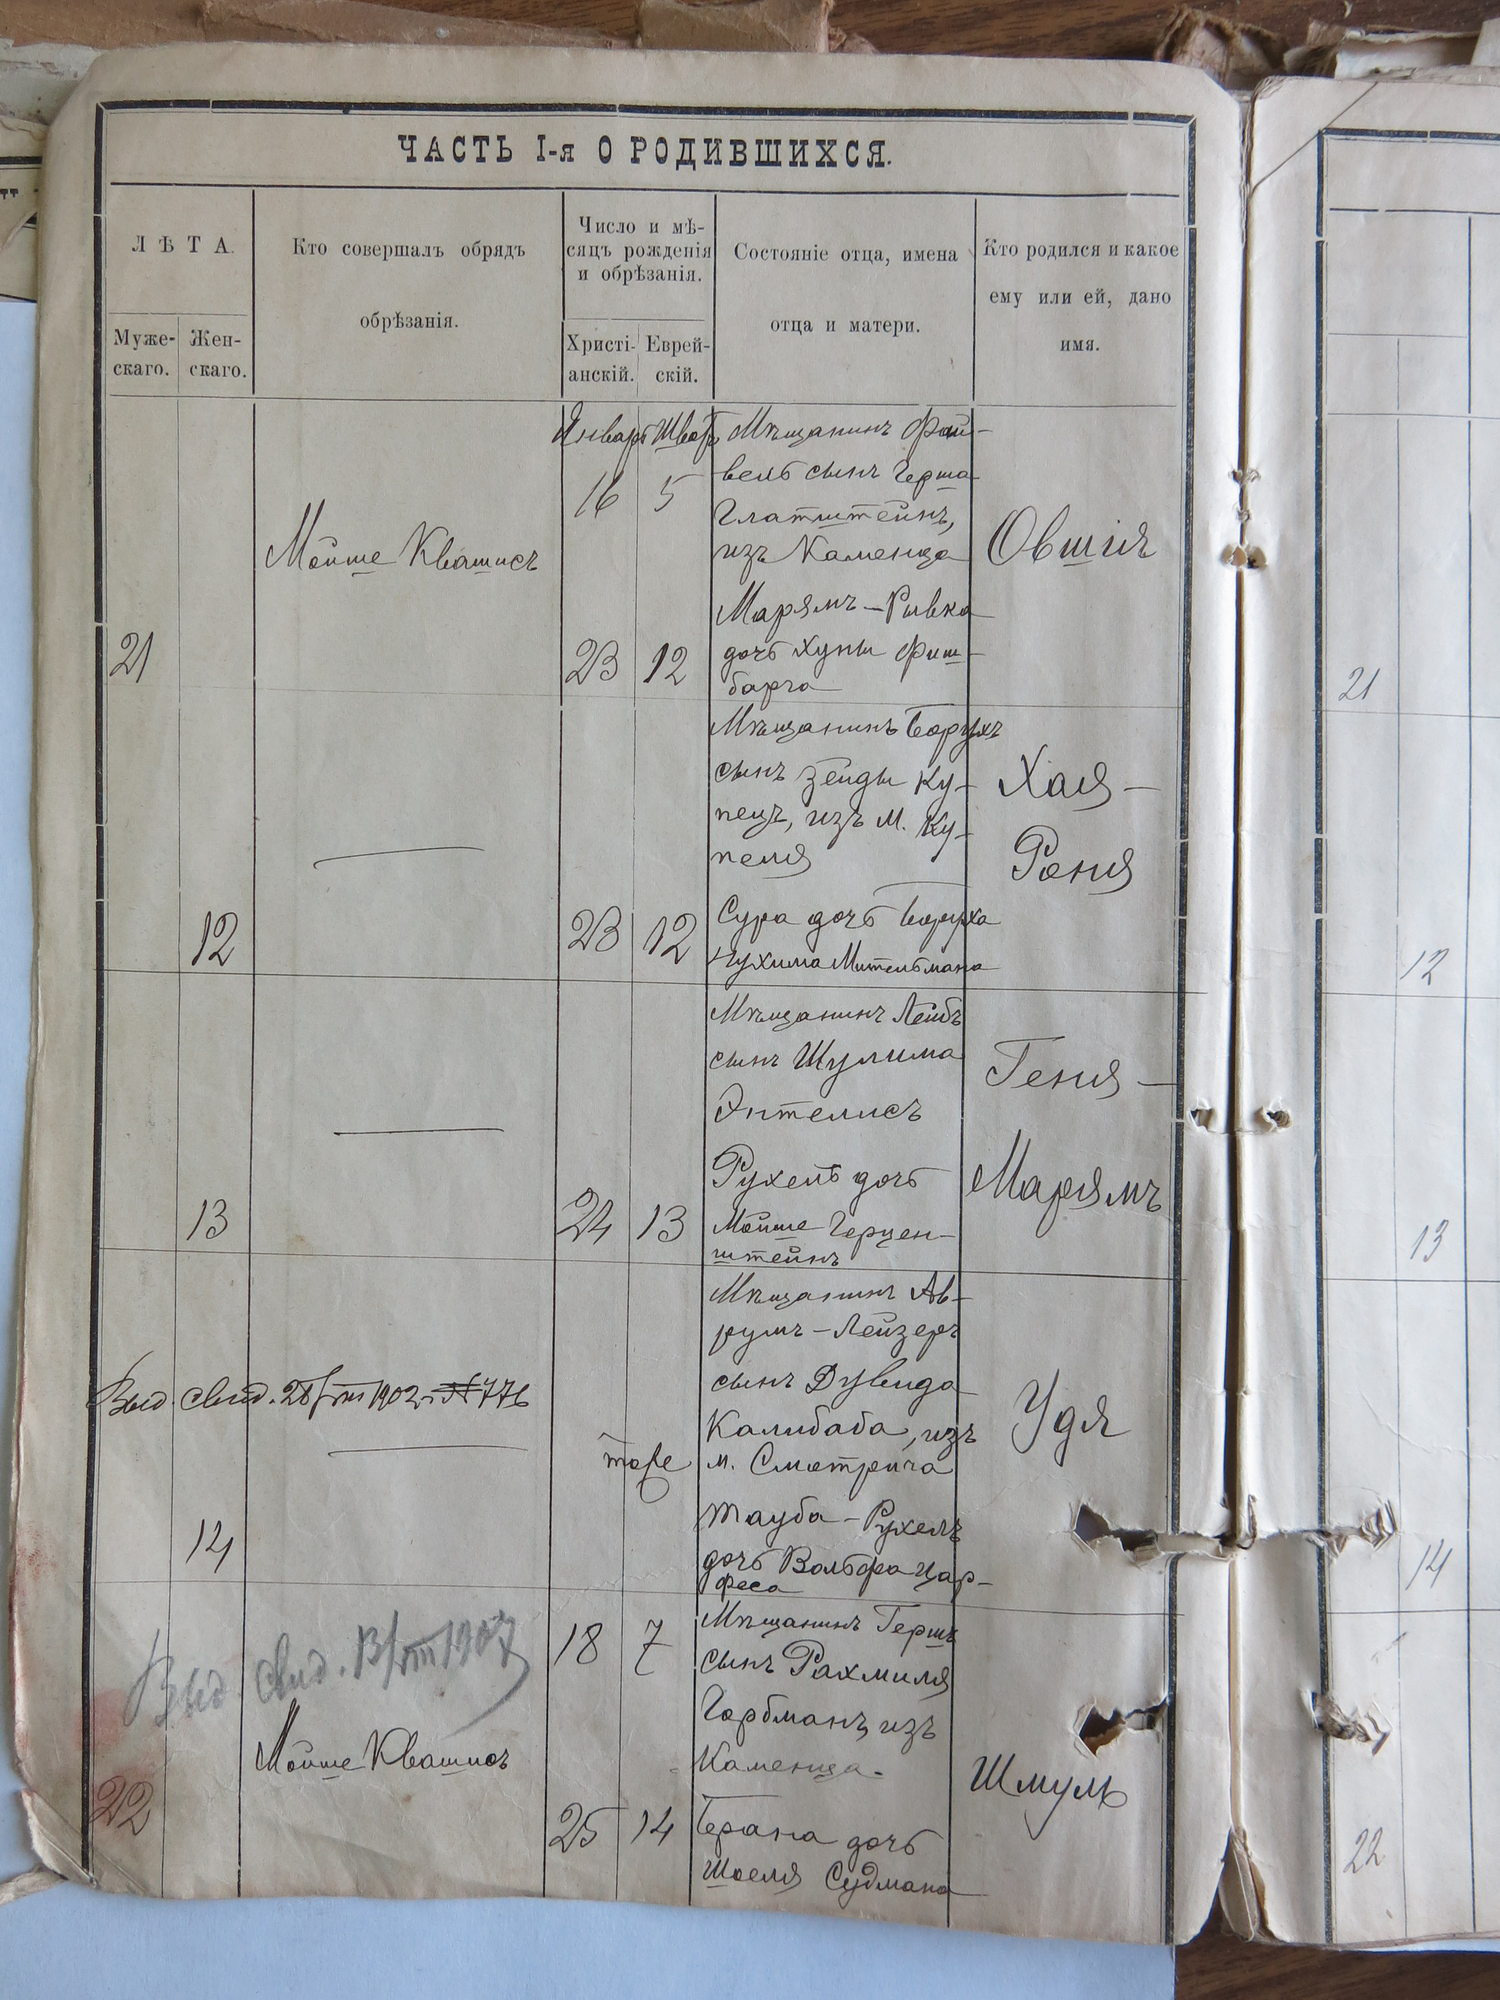 ЧАСТЬ I-я О РОДИВШИХСЯ.
ЛѢТА.
Муже-
скаго.
Жен-
скаго.
Кто совершалъ обрядъ
обрѣзанія.
Число и мѣ-
сяцъ рожденія
и обрѣзанія.
Христі-
анскій.
Еврей-
скій.
Состояніе отца, имена
отца и матери.
Кто родился и какое
ему или ей, дано
имя.
21
Мойше Квашисъ
Январь
16
23
Шватъ
5
12
Мѣщанинъ Фай-
вель сынъ Герша
Глатштейнъ,
изъ Каменца
Марямъ-Ривка
дочь Хуны Фиш-
барга
Овшія
21
12
23
12
Мѣщанинъ Борухъ
сынъ Зейды Ку-
пецъ, изъ м. Ку-
пеля
Сура дочь Боруха
Нухима Мительмана
Хая-
Роня
12
13
24
13
Мѣщанинъ Лейбъ
сынъ Шулима
Энтелисъ
Рухель дочь
Мойше Герцен-
штейнъ
Геня-
Марямъ
13
Выд. свид. 28/VIII 1902 г. № 776
14
тоже
Мѣщанинъ Ав-
румъ-Лейзеръ
сынъ Дувида
Калибаба, изъ
м. Смотрича
Тауба-Рухель
дочь Вольфа Цар-
феса
Удя
14
Выд. свид. 13/VIII 1907
22
Мойше Квашисъ
18
25
7
14
Мѣщанинъ Гершъ
сынъ Рахмиля
Горбманъ, изъ
Каменца.
Брана дочь
Шоеля Судмана
Шмуль
22